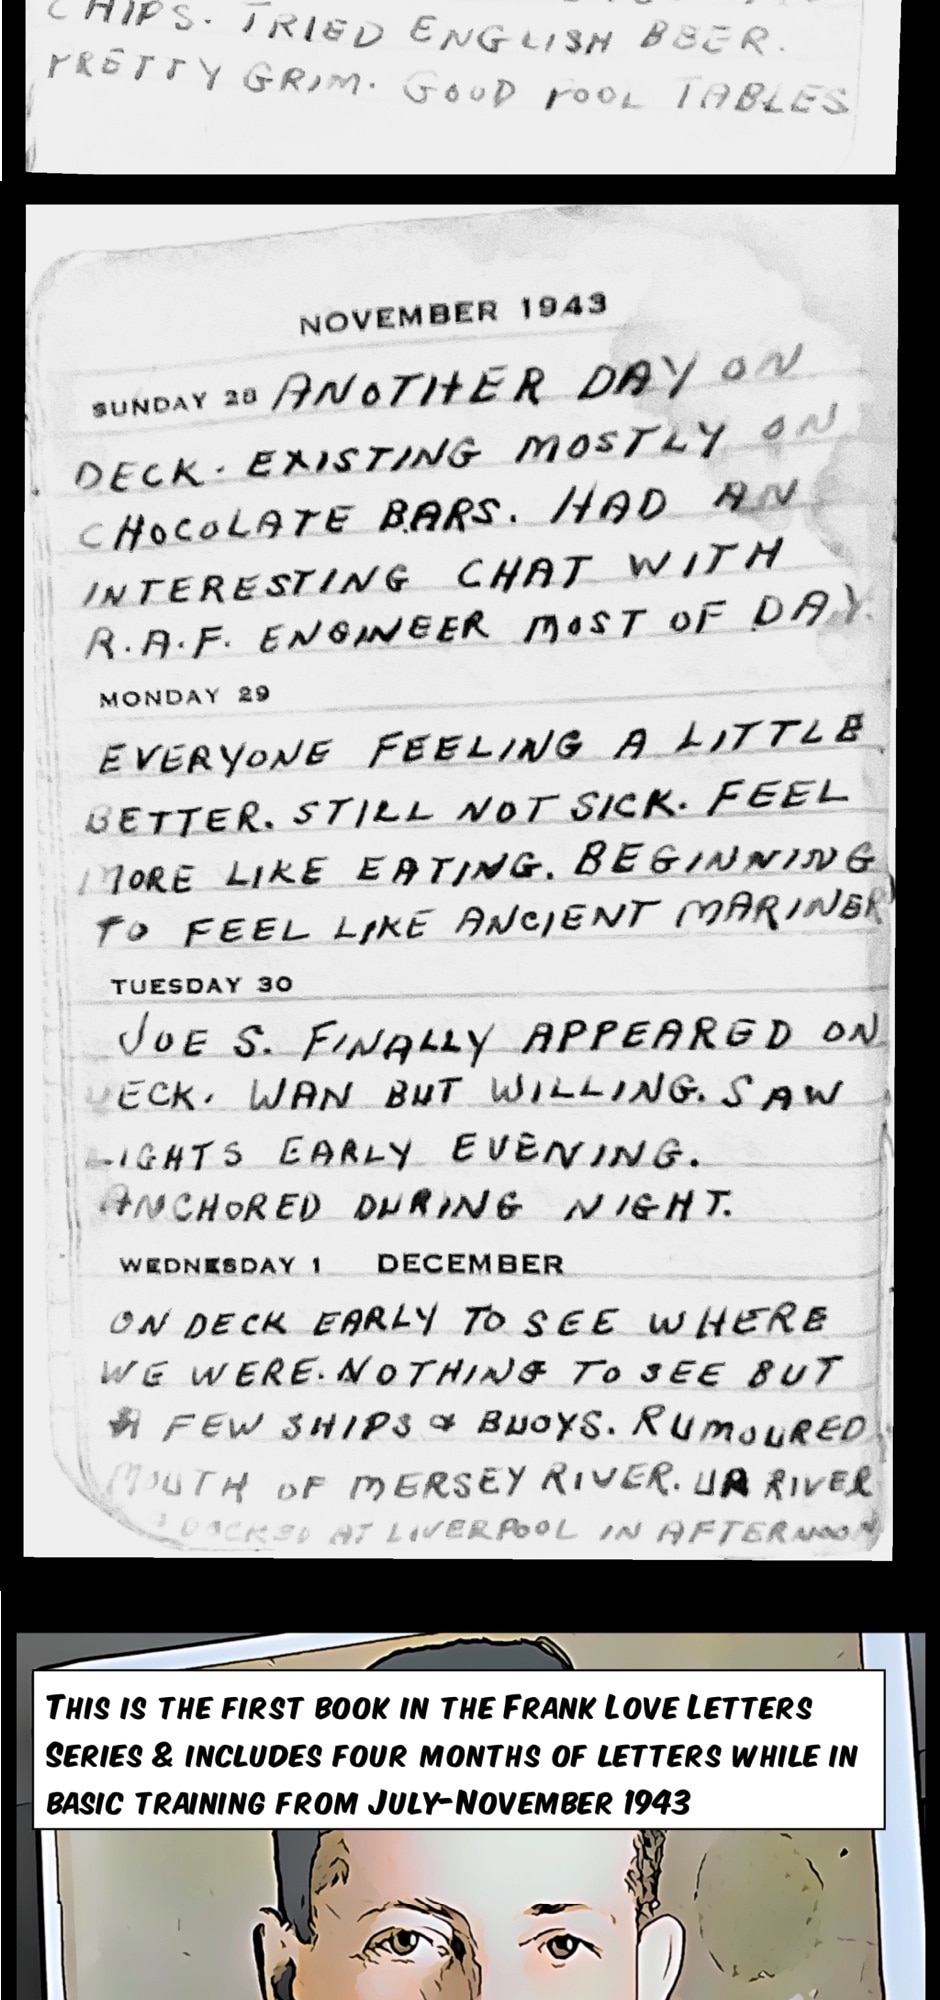 CHIPS. TRIED ENGLISH BEER.
PRETTY GRIM. GOOD POOL TABLES
NOVEMBER 1943
SUNDAY 28 ANOTHER DAY ON
DECK. EXISTING MOSTLY ON
CHOCOLATE BARS. HAD AN
INTERESTING CHAT WITH
R.A.F. ENGINEER MOST OF DAY.
MONDAY 29
EVERYONE FEELING A LITTLE
BETTER. STILL NOT SICK. FEEL
MORE LIKE EATING. BEGINNING
TO FEEL LIKE ANCIENT MARINER
TUESDAY 30
JOE S. FINALLY APPEARED ON
DECK. WAN BUT WILLING. SAW
LIGHTS EARLY EVENING.
ANCHORED DURING NIGHT.
WEDNESDAY 1 DECEMBER
ON DECK EARLY TO SEE WHERE
WE WERE. NOTHING TO SEE BUT
A FEW SHIPS & BUOYS. RUMOURED
MOUTH OF MERSEY RIVER. UP RIVER
DOCKED AT LIVERPOOL IN AFTERNOON
THIS IS THE FIRST BOOK IN THE FRANK LOVE LETTERS
SERIES & INCLUDES FOUR MONTHS OF LETTERS WHILE IN
BASIC TRAINING FROM JULY-NOVEMBER 1943